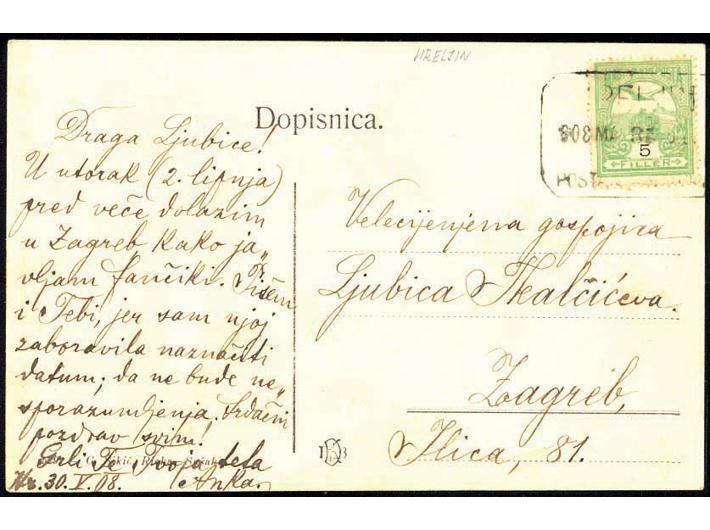 HRELJIN
Dopisnica.
5
FILLER
Draga Ljubice!
U utorak (2. lipnja)
pred veče dolazim
u Zagreb kako ja„
vljam Fančiki. Pišem
i Tebi, jer sam njoj
zaboravila naznačiti
datum; da ne bude ne„
sporazumljenja. Srdačni
pozdrav svim!
Grli Te Tvoja teta
Anka.
Hr. 30. V. 08.
Velecijenjena gospojica
Ljubica Tkalčićeva.
Zagreb,
Ilica, 81.